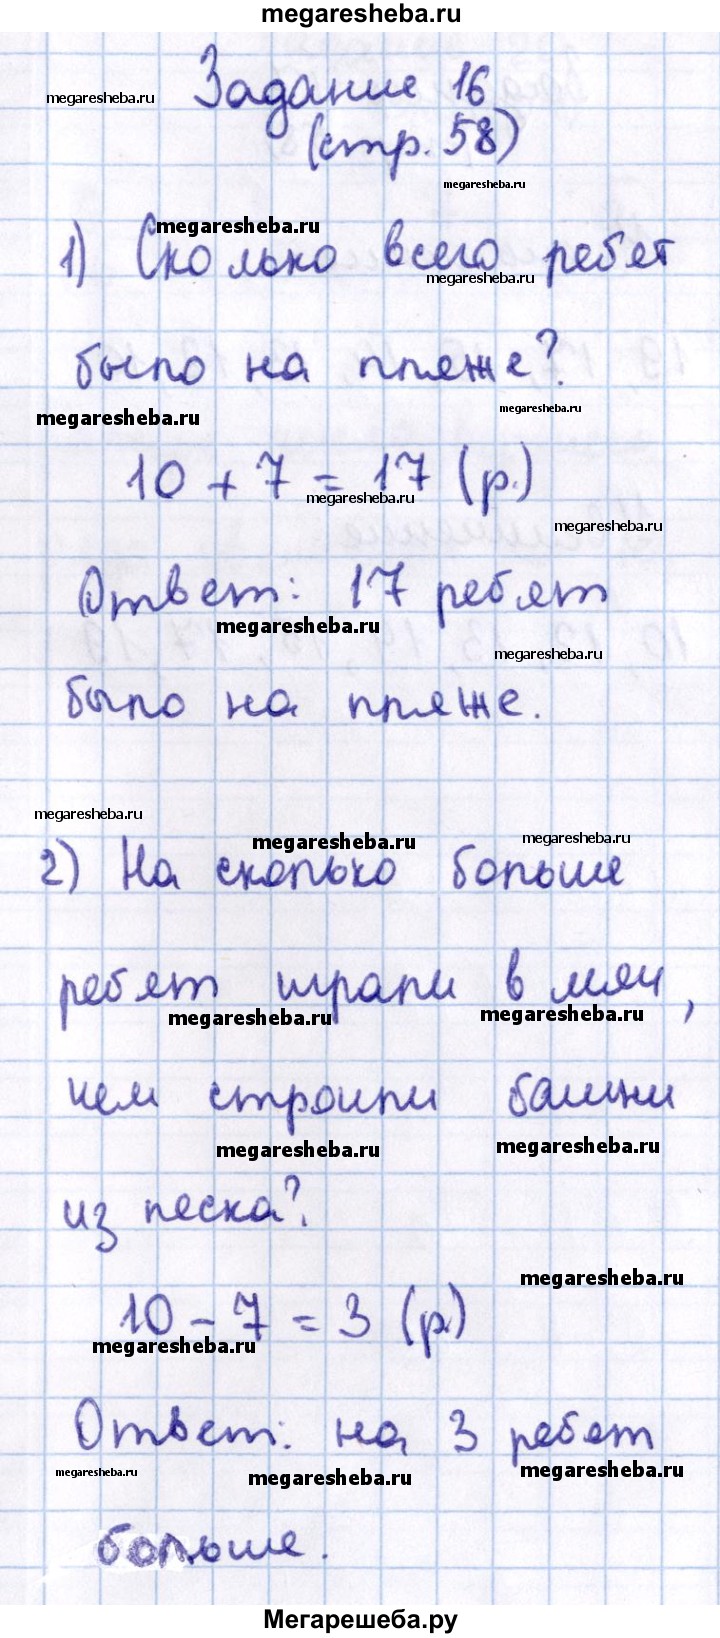 megaresheba.ru
Задание 16
megaresheba.ru
(стр. 58)
megaresheba.ru
megaresheba.ru
1) Сколько всего ребят
megaresheba.ru
было на пляже?
megaresheba.ru
megaresheba.ru
10 + 7 = 17 (р.)
megaresheba.ru
megaresheba.ru
Ответ: 17 ребят
megaresheba.ru
megaresheba.ru
было на пляже.
megaresheba.ru
megaresheba.ru
megaresheba.ru
2) На сколько больше
ребят играли в мяч,
megaresheba.ru
megaresheba.ru
чем строили башни
megaresheba.ru
megaresheba.ru
из песка?
megaresheba.ru
10 - 7 = 3 (р.)
megaresheba.ru
Ответ: на 3 ребят
megaresheba.ru
megaresheba.ru
megaresheba.ru
больше.
Мегарешеба.ру